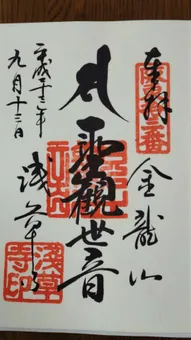 奉拝
坂東十三番
金龍山
聖観世音
浅草寺
浅草寺印
平成二十三年
九月十三日